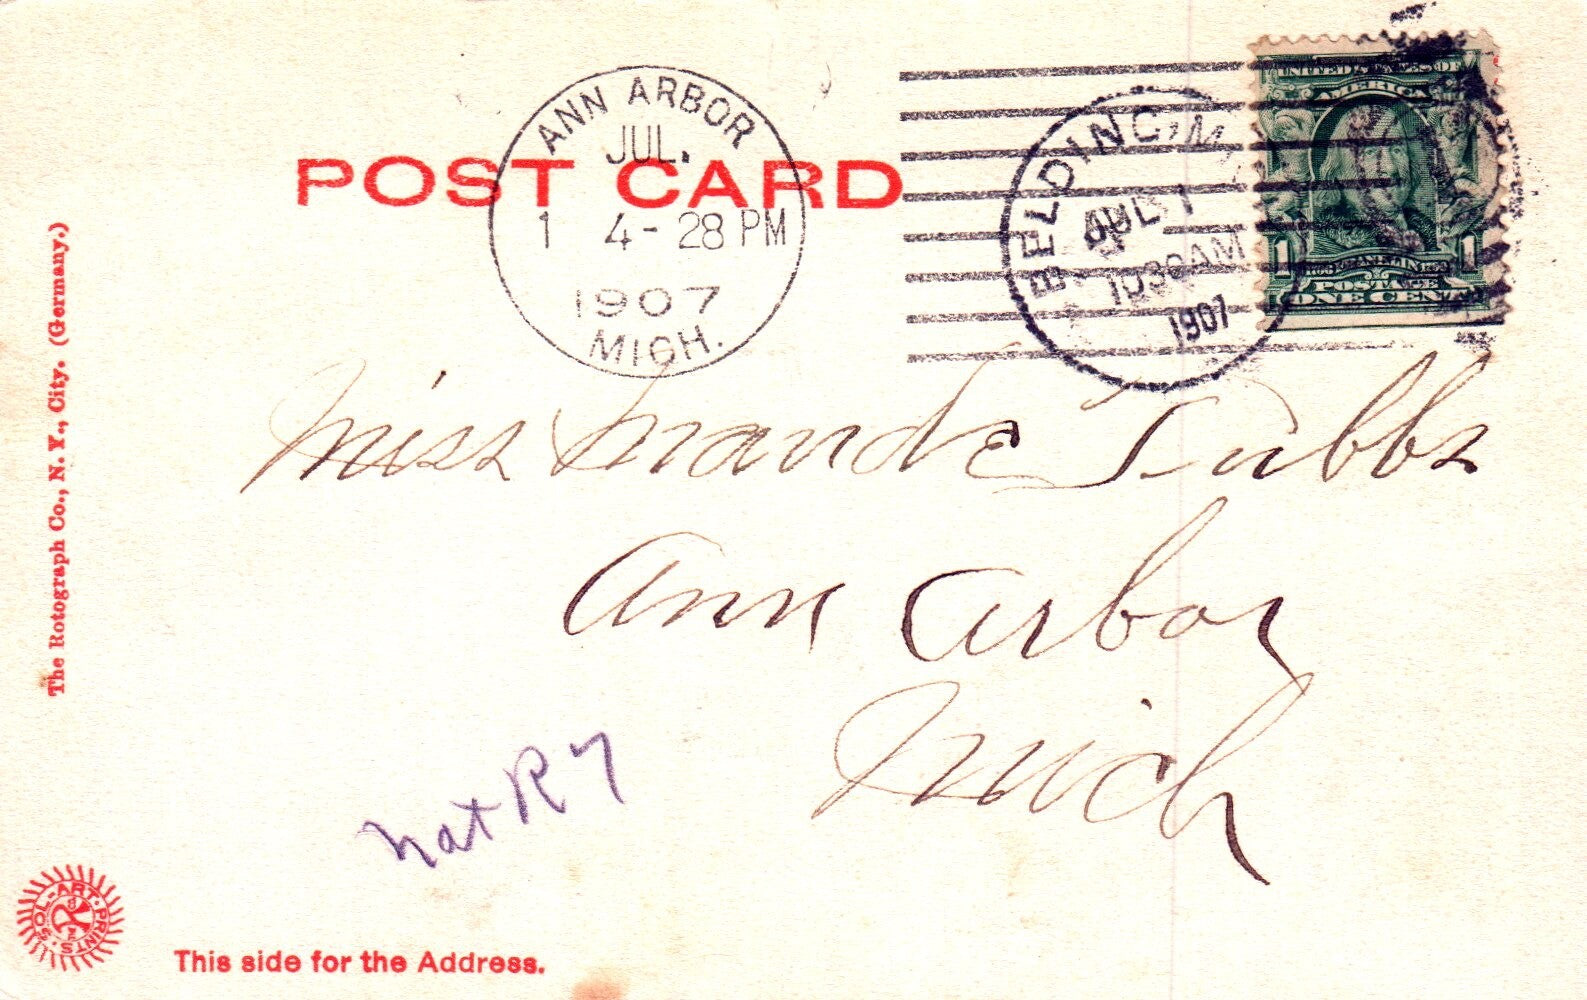 POST CARD
ANN ARBOR
JUL.
1 4-28 PM
1907
MICH.
BELDING, MICH
JUL 1
1030AM
1907
UNITED STATES OF
AMERICA
1 1
POSTAGE
ONE CENT
Miss Maude Tubbs
Ann Arbor
Mich
Not R 7
The Rotograph Co., N. Y., City. (Germany.)
SOL-ART-PRINTS
This side for the Address.